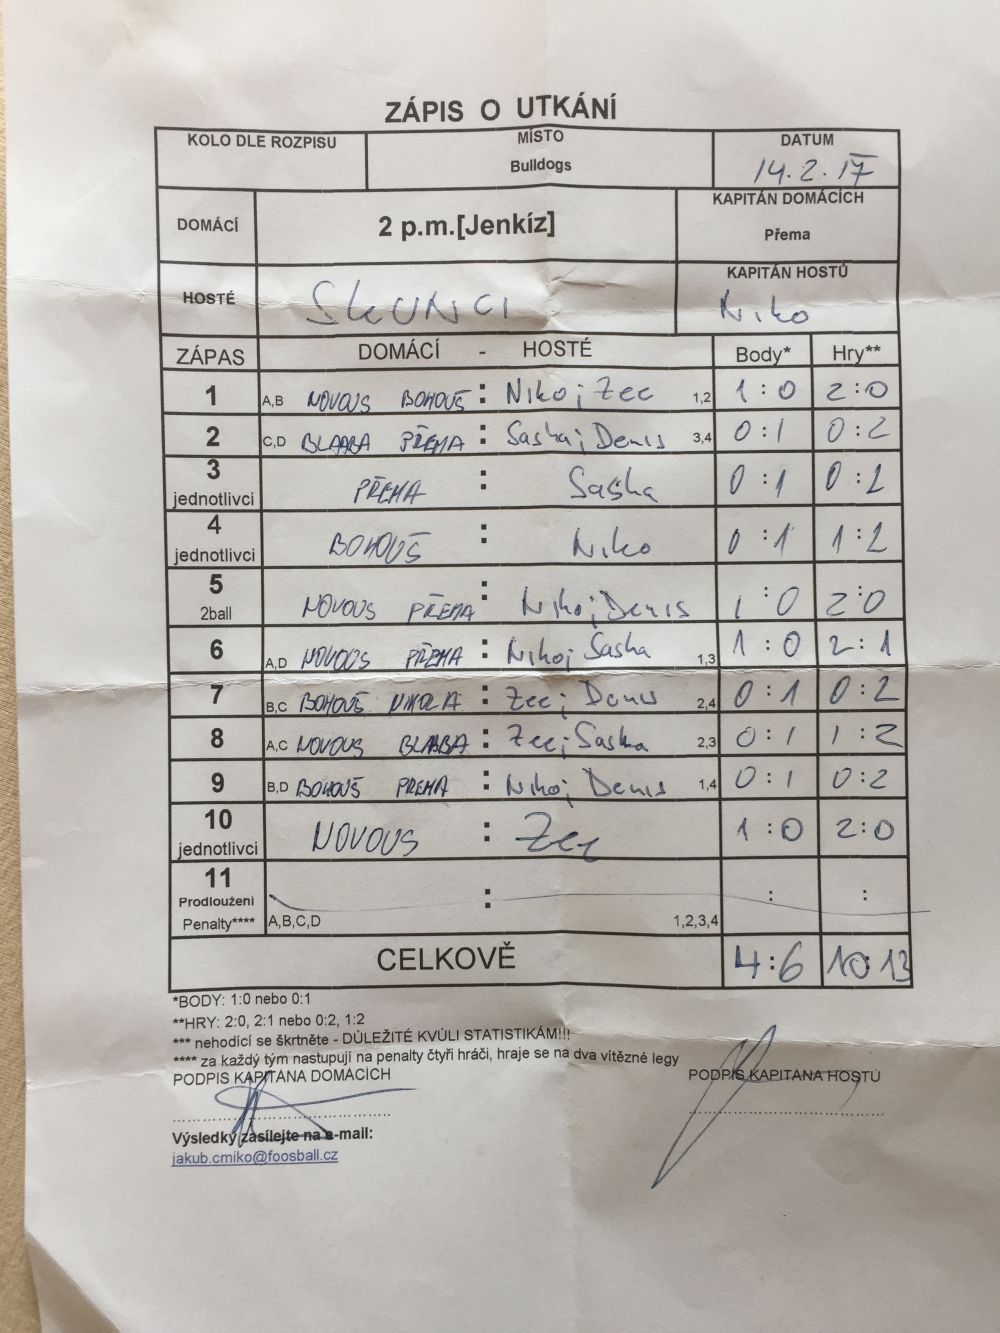 ZÁPIS O UTKÁNÍ
KOLO DLE ROZPISU MÍSTO DATUM
Bulldogs 14.2.17
DOMÁCÍ 2 p.m.[Jenkíz] KAPITÁN DOMÁCÍCH
Přema
HOSTÉ SKUNCI KAPITÁN HOSTŮ
Niko
ZÁPAS DOMÁCÍ - HOSTÉ Body* Hry**
1 A,B NOVOUS BOHOUŠ : Niko; Zec 1,2 1:0 2:0
2 C,D BLABA PŘEMA : Sasha; Denis 3,4 0:1 0:2
3 jednotlivci PŘEMA : Sasha 0:1 0:2
4 jednotlivci BOHOUŠ : Niko 0:1 1:2
5 2ball NOVOUS PŘEMA : Niko; Denis 1:0 2:0
6 A,D NOVOUS PŘEMA : Niko; Sasha 1,3 1:0 2:1
7 B,C BOHOUŠ NIKOLA : Zec; Denis 2,4 0:1 0:2
8 A,C NOVOUS BLABA : Zec; Saska 2,3 0:1 1:2
9 B,D BOHOUŠ PŘEMA : Niko; Denis 1,4 0:1 0:2
10 jednotlivci NOVOUS : Zec 1:0 2:0
11 Prodloužení : : :
Penalty**** A,B,C,D 1,2,3,4
CELKOVĚ 4:6 10:13
*BODY: 1:0 nebo 0:1
**HRY: 2:0, 2:1 nebo 0:2, 1:2
*** nehodící se škrtněte - DŮLEŽITÉ KVŮLI STATISTIKÁM!!!
**** za každý tým nastupují na penalty čtyři hráči, hraje se na dva vítězné legy
PODPIS KAPITÁNA DOMÁCÍCH PODPIS KAPITÁNA HOSTŮ
Výsledky zasílejte na e-mail:
jakub.cmiko@foosball.cz